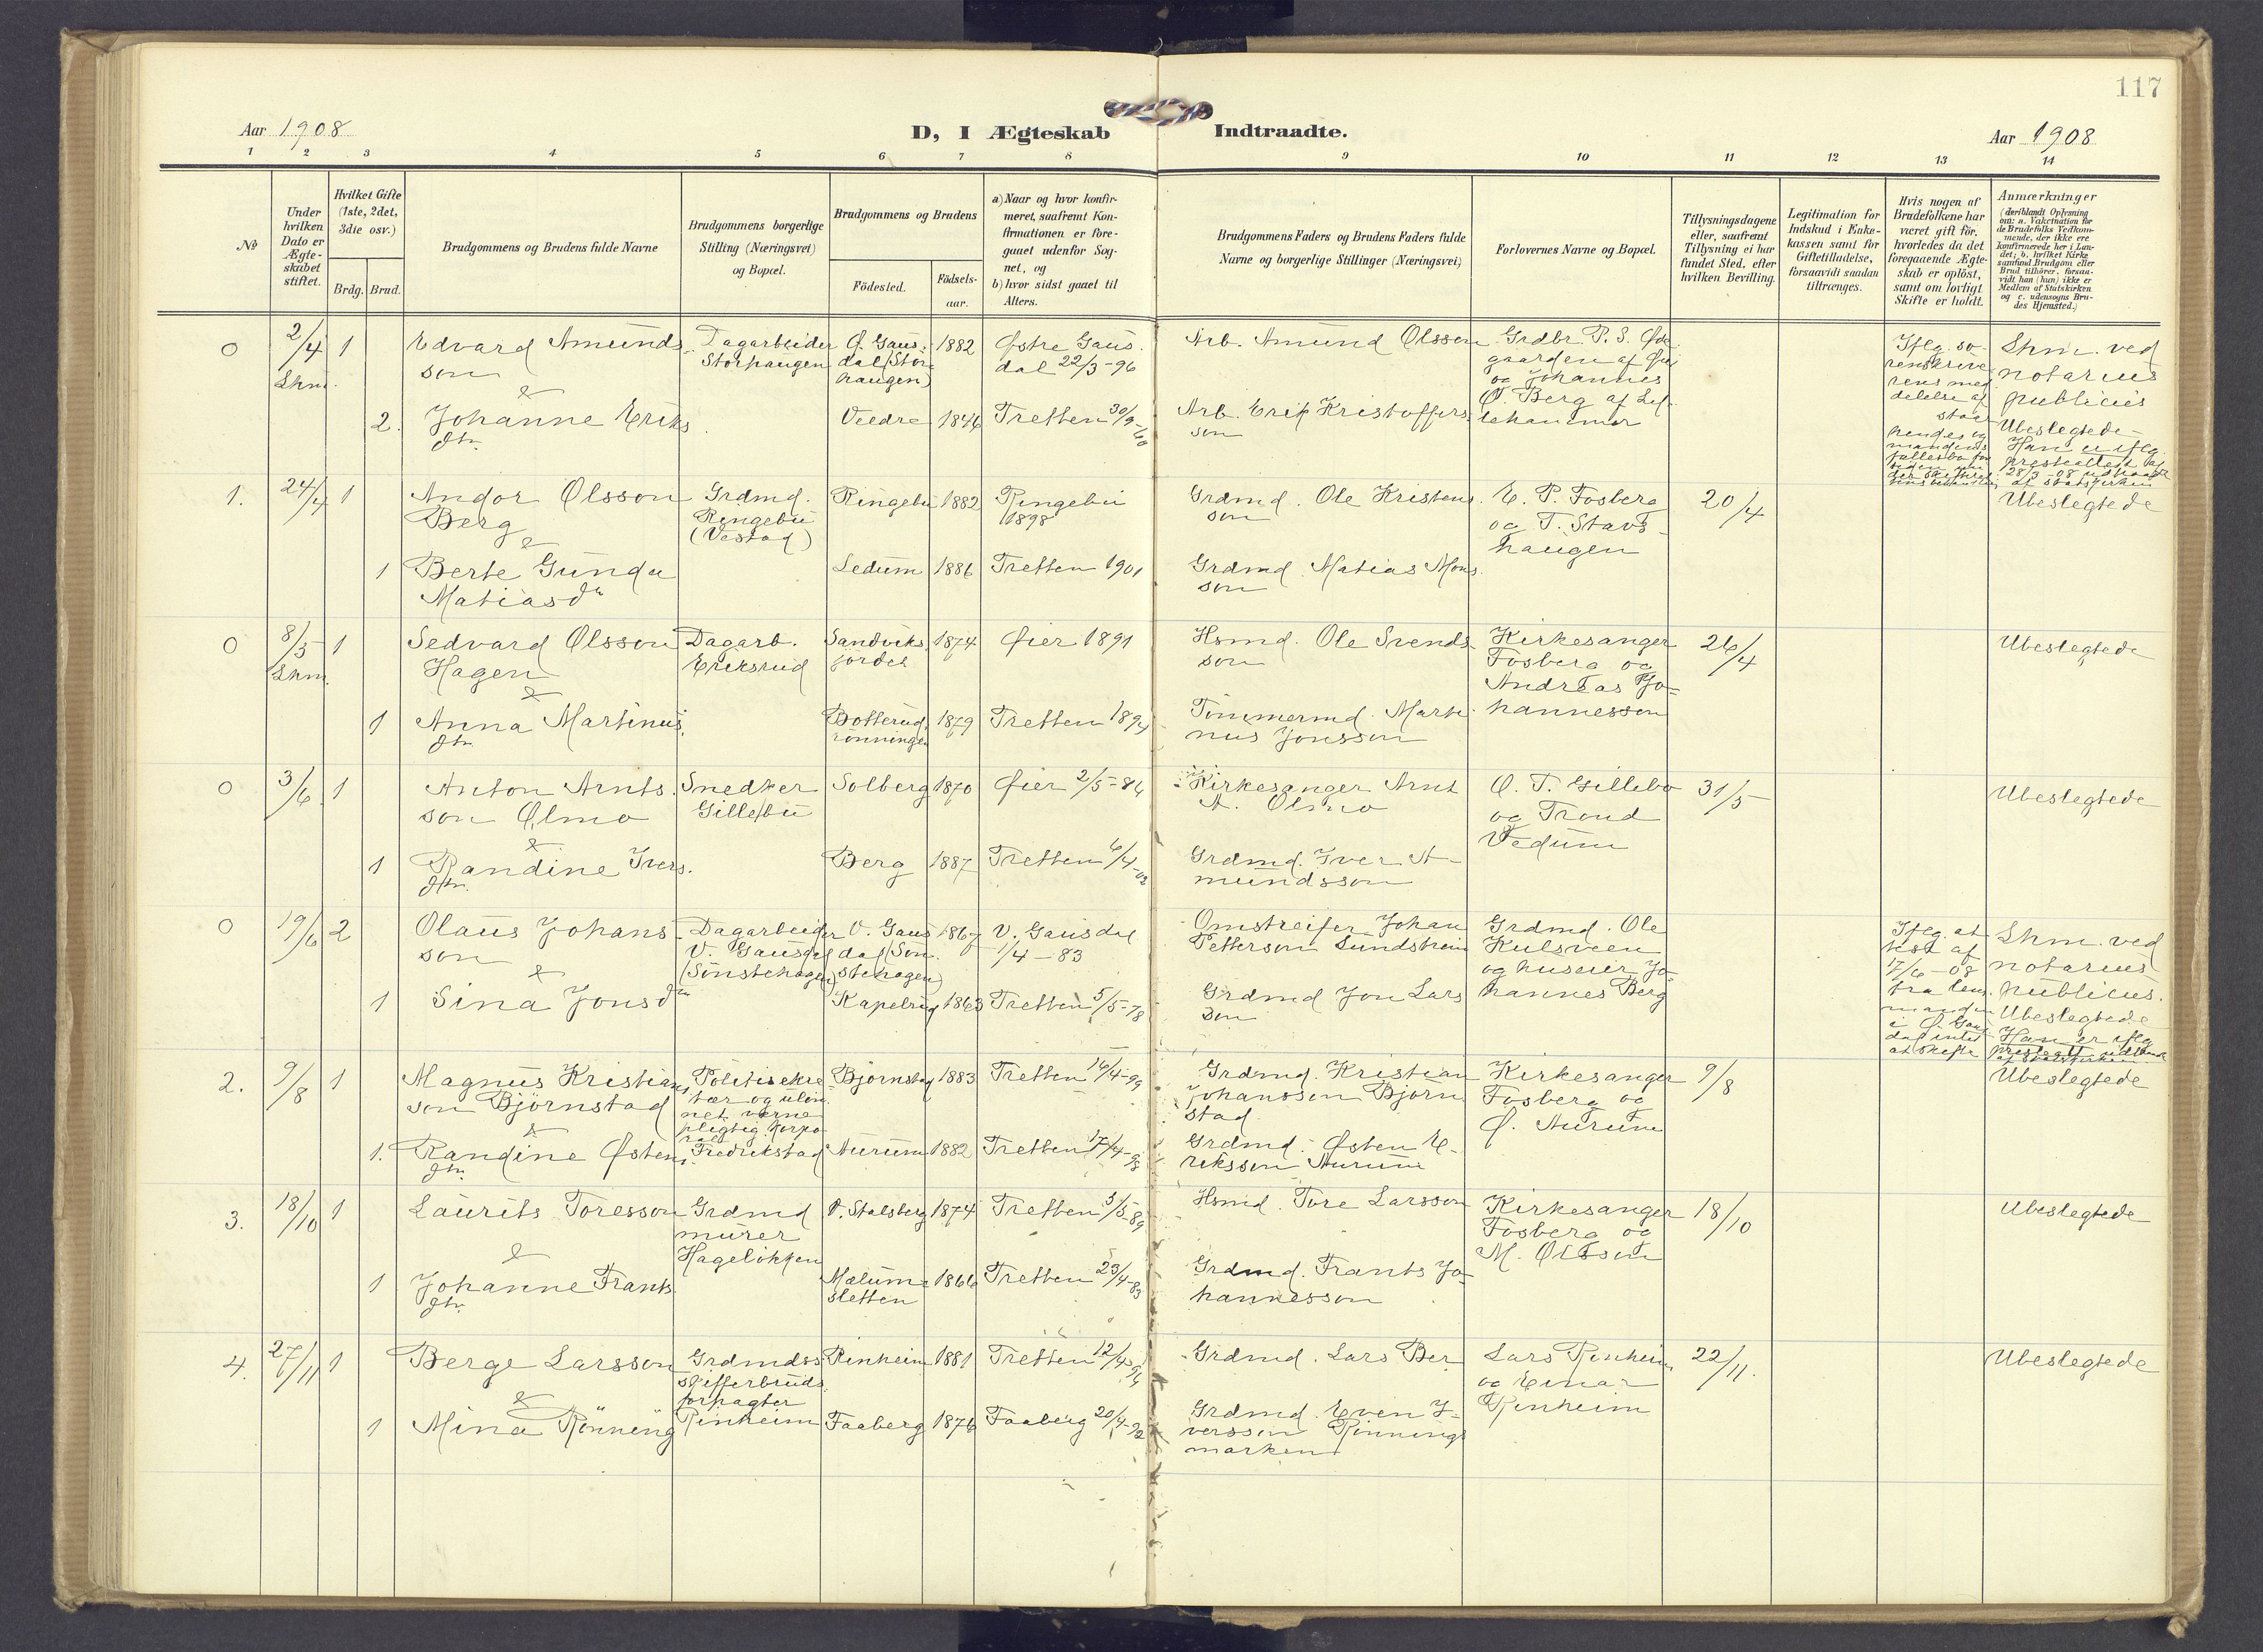 117
Aar 1908
D, I Ægteskab Indtraadte.
Aar 1908
1 2 3 4 5 6 7 8 9 10 11 12 13 14
№
Under
hvilken
Dato er
Ægte-
skabet
stiftet.
Hvilket Gifte
(1ste, 2det,
3die osv.)
Brdg. Brud.
Brudgommens og Brudens fulde Navne
Brudgommens borgerlige
Stilling (Næringsvei)
og Bopæl.
Brudgommens og Brudens
Födested.
Födsels-
aar.
a) Naar og hvor konfir-
meret, saafremt Kon-
firmationen er fore-
gaaet udenfor Sog-
net, og
b) hvor sidst gaaet til
Alters.
Brudgommens Faders og Brudens Faders fulde
Navne og borgerlige Stillinger (Næringsvei)
Forlovernes Navne og Bopæl.
Tillysningsdagene
eller, saafremt
Tillysning ei har
fundet Sted, efter
hvilken Bevilling.
Legitimation for
Indskud i Enke-
kassen samt for
Giftetilladelse,
forsaavidt saadan
tiltrænges.
Hvis nogen af
Brudefolkene har
været gift för,
hvorledes da det
foregaaende Ægte-
skab er oplöst,
samt om lovligt
Skifte er holdt.
Anmærkninger
(deriblandt Oplysning
om: a. Vakcination for
de Brudefolks Vedkom-
mende, der ikke ere
konfirmerede her i Lan-
det; b. hvilket Kirke
samfund Brudgom eller
Brud tilhörer, forsaa-
vidt han (hun) ikke er
Medlem af Statskirken
og c. udensogns Bru-
des Hjemsted.)
0 2/4 1
Lhm.
Edvard Amunds-
son
&
Dagarbeider
Storhaugen
Ø. Gaus-
dal (Stor-
haugen)
1882
Østre Gaus-
dal 22/3-96
Arb. Amund Olsson
Grdbr. P. S. Øde-
gaarden af Øier
og Johannes
O. Berg af Lil-
lehammer
Iflg. so-
renskrive-
rens med-
delelse af
Lhm. ved
notarius
publicus
Ubeslegtede
Han er iflg.
presteattest af
28/3-08 udtraadt
af statskirken
2. Johanne Eriks
dtr.
Veedre 1846 Tretten 30/9-60
Arb. Erik Kristoffers-
son
1. 24/4 1
Andor Olsson
Berg
&
Grdmd.
Ringebu
(Vestad)
Ringebu 1882 Ringebu
1898
Grdmd. Ole Kristens-
son
E. P. Fosberg
og T. Stavs-
haugen
20/4
Ubeslegtede
1 Berte Gunda
Matiasdtr
Ledum 1886 Tretten 1901
Grdmd. Matias Mons-
son
0 8/5 1
Lhm.
Sedvard Olsson
Hagen
&
Dagarb.
Eriksrud
Sandviks-
jordet
1874 Øier 1891
Hsmd. Ole Svends-
son
Kirkesanger
Fosberg og
Andreas Jo-
hannesson
26/4
Ubeslegtede
1 Anna Martinus-
dtr.
Botterud-
rønningen
1879 Tretten 1894
Tømmermd. Marti-
nus Jonsson
0 3/6 1
Anton Arnts-
son Olmo
&
Snedker
Gillebu
Solberg 1870 Øier 2/5-84
Kirkesanger Arnt
A. Olmo
O. T. Gillebo
og Trond
Vedum
31/5
Ubeslegtede
1 Randine Ivers-
dtr.
Berg 1887 Tretten 6/4-02
Grdmd. Iver A-
mundsson
0 19/6 2
Olaus Johans-
son
&
Dagarbeider
V. Gausdal
(Sønstehagen)
V. Gaus-
dal (Søn-
stehagen)
1867 V. Gausdal
1/4-83
Omstreifer Johan
Petterson Sundstrøm
Grdmd. Ole
Kulsveen
og huseier Jo-
hannes Berg
Iflg. at-
test af
17/6-08
fra lens-
manden
i Ø. Gaus-
dal intet
at skifte
Lhm. ved
notarius
publicus.
Ubeslegtede
Han er iflg.
1 Sina Jonsdtr
Kapelrud 1863 Tretten 5/5-78
Grdmd Jon Lars-
son
2. 9/8 1
Magnus Kristians-
son Bjørnstad
&
Politisekre-
tær og uløn-
net værne-
pligtig korpo-
ral
Fredrikstad
Bjørnstad 1883 Tretten 16/4-99
Grdmd. Kristian
Johansson Bjørn-
stad
Kirkesanger
Fosberg og
Ø. Aurum
9/8
Ubeslegtede
1. Randine Østens-
dtr.
Aurum 1882 Tretten 17/4-98
Grdmd. Østen E-
riksson Aurum
3. 18/10 1
Laurits Toresson
&
Grdmd
murer
Hageløkken
V. Stalsberg 1874 Tretten 3/5-89
Hsmd. Tore Larsson
Kirkesanger
Fosberg og
M. Olsson
18/10
Ubeslegtede
1 Johanne Frants
dtr.
Mælum-
sletten
1866 Tretten 23/4-83
Grdmd. Frants Jo-
hannesson
4. 27/11 1
Berge Larsson
&
Grdmdss.
skifferbruds-
forpagter
Rinheim
Rinheim 1881 Tretten 12/4-96
Grdmd. Lars Ber
Lars Rinheim
og Einar
Rinheim
22/11.
Ubeslegtede
1 Mina Rønning
Faaberg 1876 Faaberg 20/4-92
Grdmd. Even I-
versson Rønnings-
marken